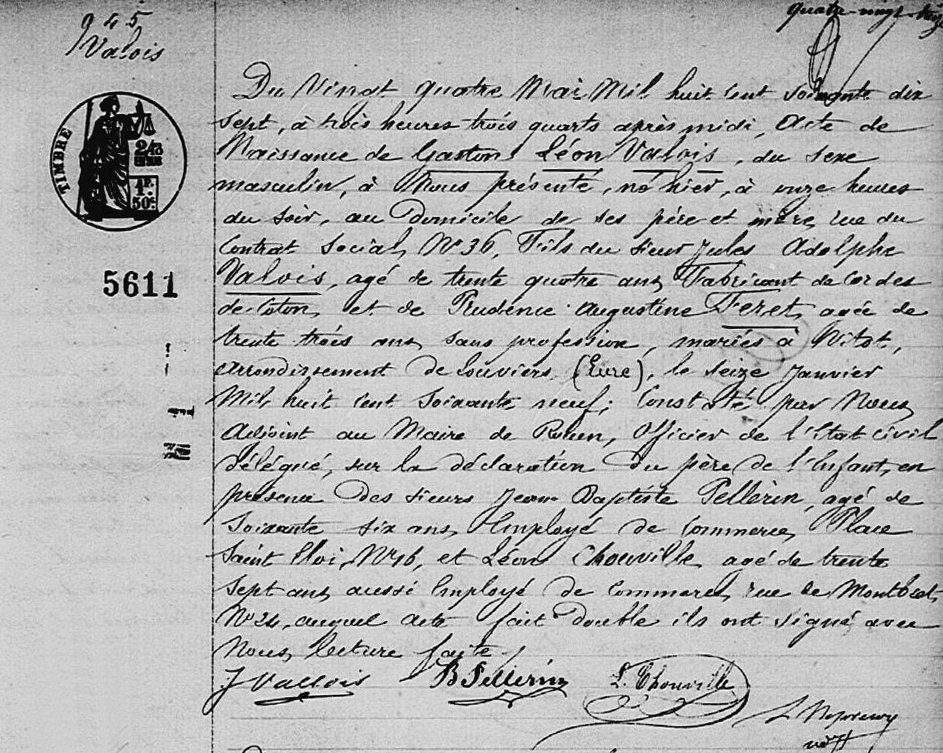 945
Valois
quatre-vingt-treize
TIMBRE
2/10 EN SUS
1F.
50C.
5611
Du Vingt quatre Mai Mil huit cent soixante dix
sept, à trois heures trois quarts après midi, Acte de
Naissance de Gaston Léon Valois, du sexe
masculin, à Nous présenté, né hier, à onze heures
du soir, au domicile de ses père et mère, rue du
Contrat Social, No 36, Fils du sieur Jules Adolphe
Valois, agé de trente quatre ans, Fabricant de Cordes
de Coton, et de Prudence Augustine Feret, agée de
trente trois ans, sans profession, mariés à Vitot,
arrondissement de Louviers, (Eure), le seize Janvier
Mil huit cent soixante neuf; Constaté par Nous
Adjoint au Maire de Rouen, Officier de l'Etat civil
délégué, sur la déclaration du père de l'Enfant, en
présence des sieurs Jean Baptiste Pellerin, agé de
Soixante six ans, Employé de Commerce, Place
Saint Eloi, No 16, et Léon Chouville, agé de trente
sept ans, aussi Employé de Commerce, rue de Montbret,
No 24, auquel acte fait double ils ont signé avec
Nous, lecture faite.
J Vallois B Pellerin L. Chouville